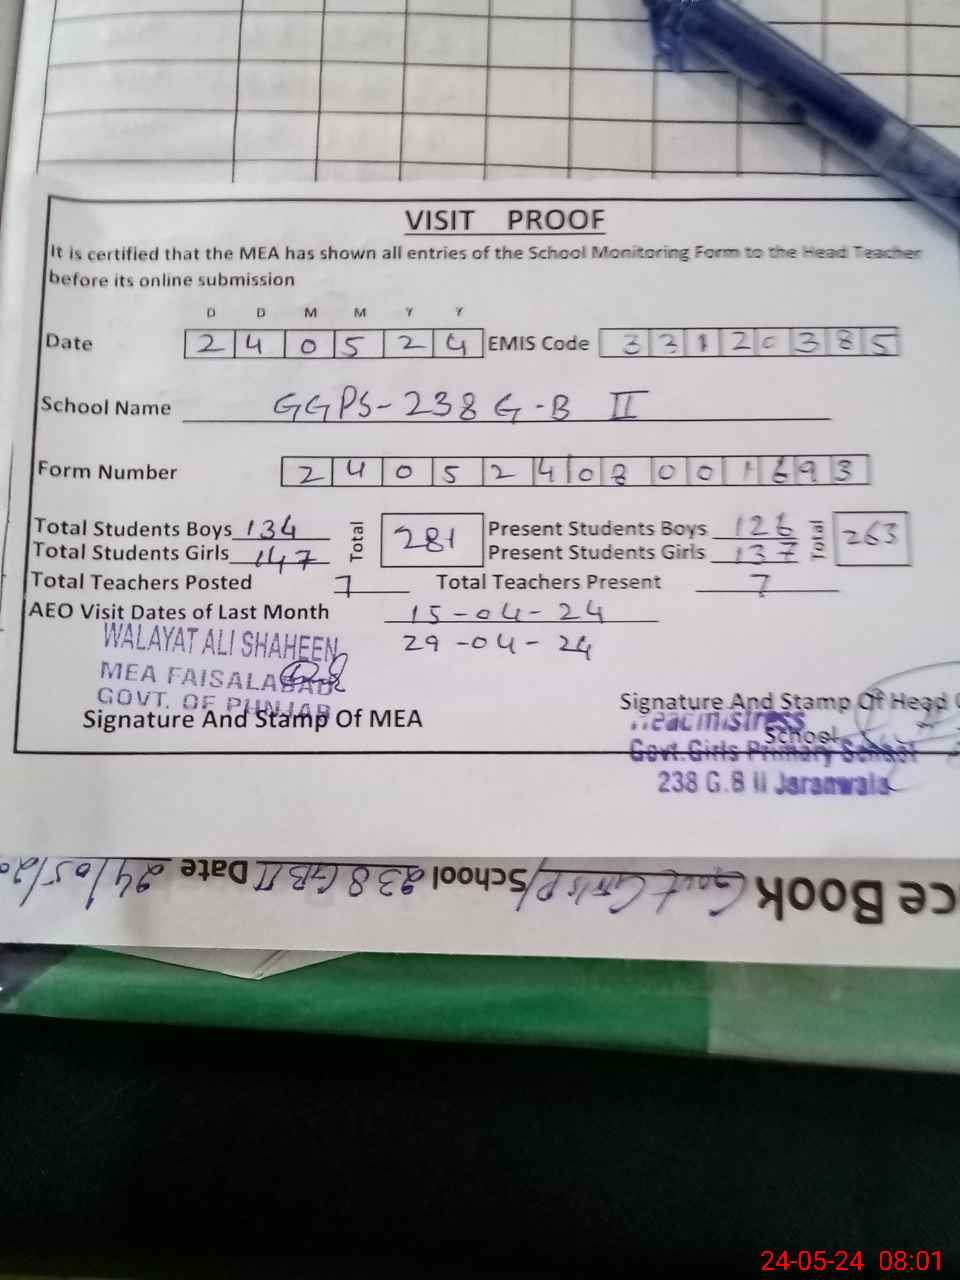 VISIT PROOF
It is certified that the MEA has shown all entries of the School Monitoring Form to the Head Teacher
before its online submission
D D M M Y Y
Date 2 4 0 5 2 4 EMIS Code 3 3 1 2 0 3 8 5
School Name GGPS-238 G-B II
Form Number 2 4 0 5 2 4 0 8 0 0 1 6 9 3
Total Students Boys 134 Total 281 Present Students Boys 126 Total 263
Total Students Girls 147 Present Students Girls 137
Total Teachers Posted 7 Total Teachers Present 7
AEO Visit Dates of Last Month 15-04-24
29-04-24
WALAYAT ALI SHAHEEN
MEA FAISALABAD
GOVT. OF PUNJAB
Signature And Stamp Of MEA
Signature And Stamp Of Head
School
Headmistress
Govt. Girls Primary School
238 G.B II Jaranwala
ce Book Govt Girls P/School 238 GB II Date 24/05/20
24-05-24 08:01